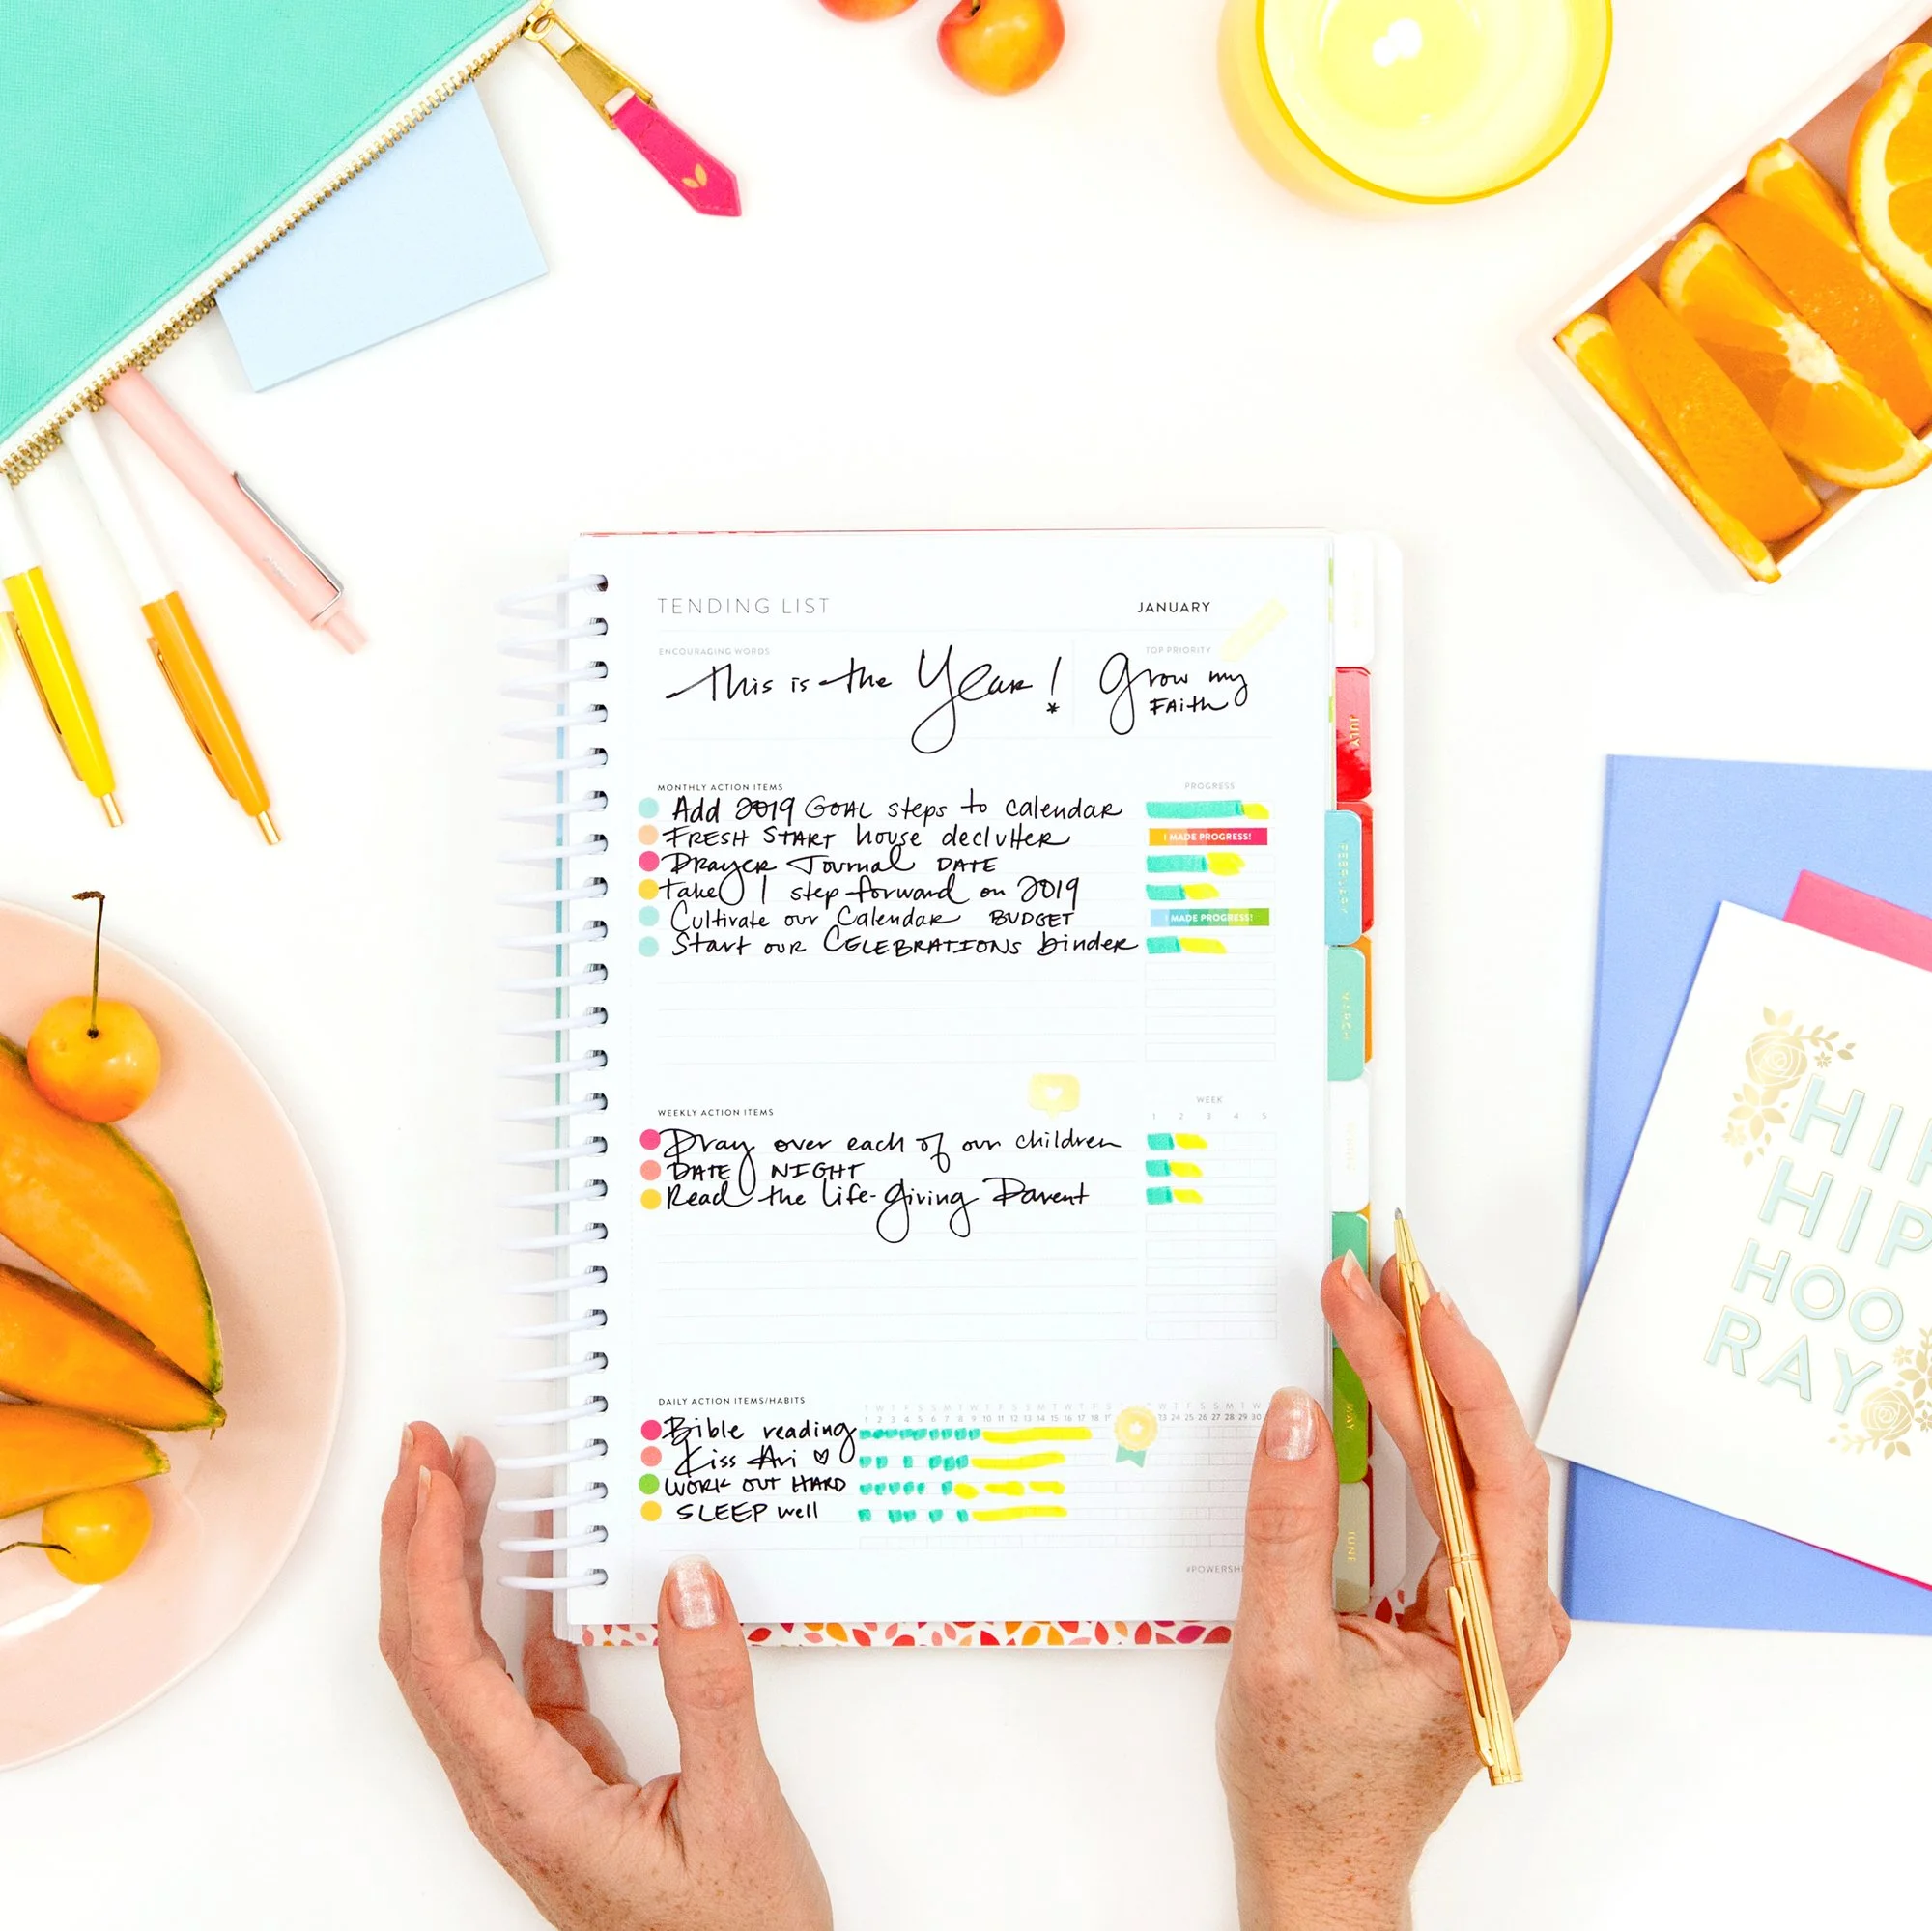 TENDING LIST JANUARY
ENCOURAGING WORDS TOP PRIORITY
This is the Year! Grow my
FAith
MONTHLY ACTION ITEMS PROGRESS
Add 2019 GOAL steps to calendar
FRESH START house declutter I MADE PROGRESS!
PRAyer Journal DATE
take 1 step forward on 2019
Cultivate our Calendar BUDGET I MADE PROGRESS!
Start our CELEBRATIONS binder
WEEKLY ACTION ITEMS WEEK
1 2 3 4 5
Pray over each of our children
DATE NIGHT
Read the life-giving Parent
DAILY ACTION ITEMS/HABITS T W T F S S M T W T F S S M T W T F
1 2 3 4 5 6 7 8 9 10 11 12 13 14 15 16 17 18 23 24 25 26 27 28 29 30
Bible reading
Kiss Ari ♡
WORK OUT HARD
SLEEP well
#POWERSH
JULY
FEBRUARY
MARCH
MAY
JUNE
HIP
HIP
HOO
RAY